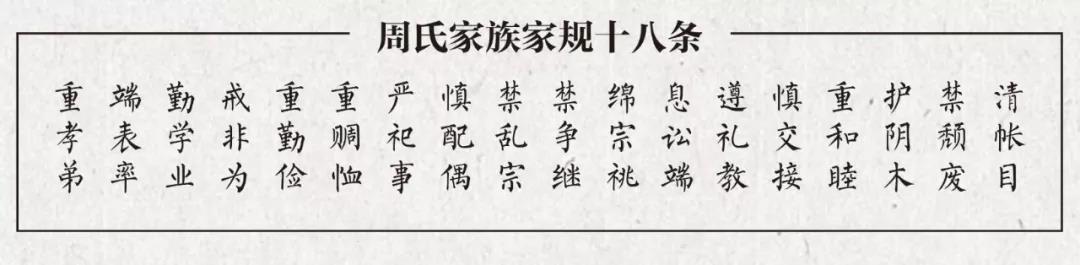 周氏家族家规十八条
重孝弟
端表率
勤学业
戒非为
重勤俭
重赒恤
严祀事
慎配偶
禁乱宗
禁争继
绵宗祧
息讼端
遵礼教
慎交接
重和睦
护阴木
禁颓废
清帐目